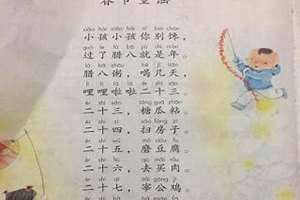 春节童谣
小孩小孩你别馋，
过了腊八就是年。
腊八粥，喝几天，
哩哩啦啦二十三。
二十三，糖瓜粘，
二十四，扫房子，
二十五，磨豆腐，
二十六，去买肉，
二十七，宰公鸡，